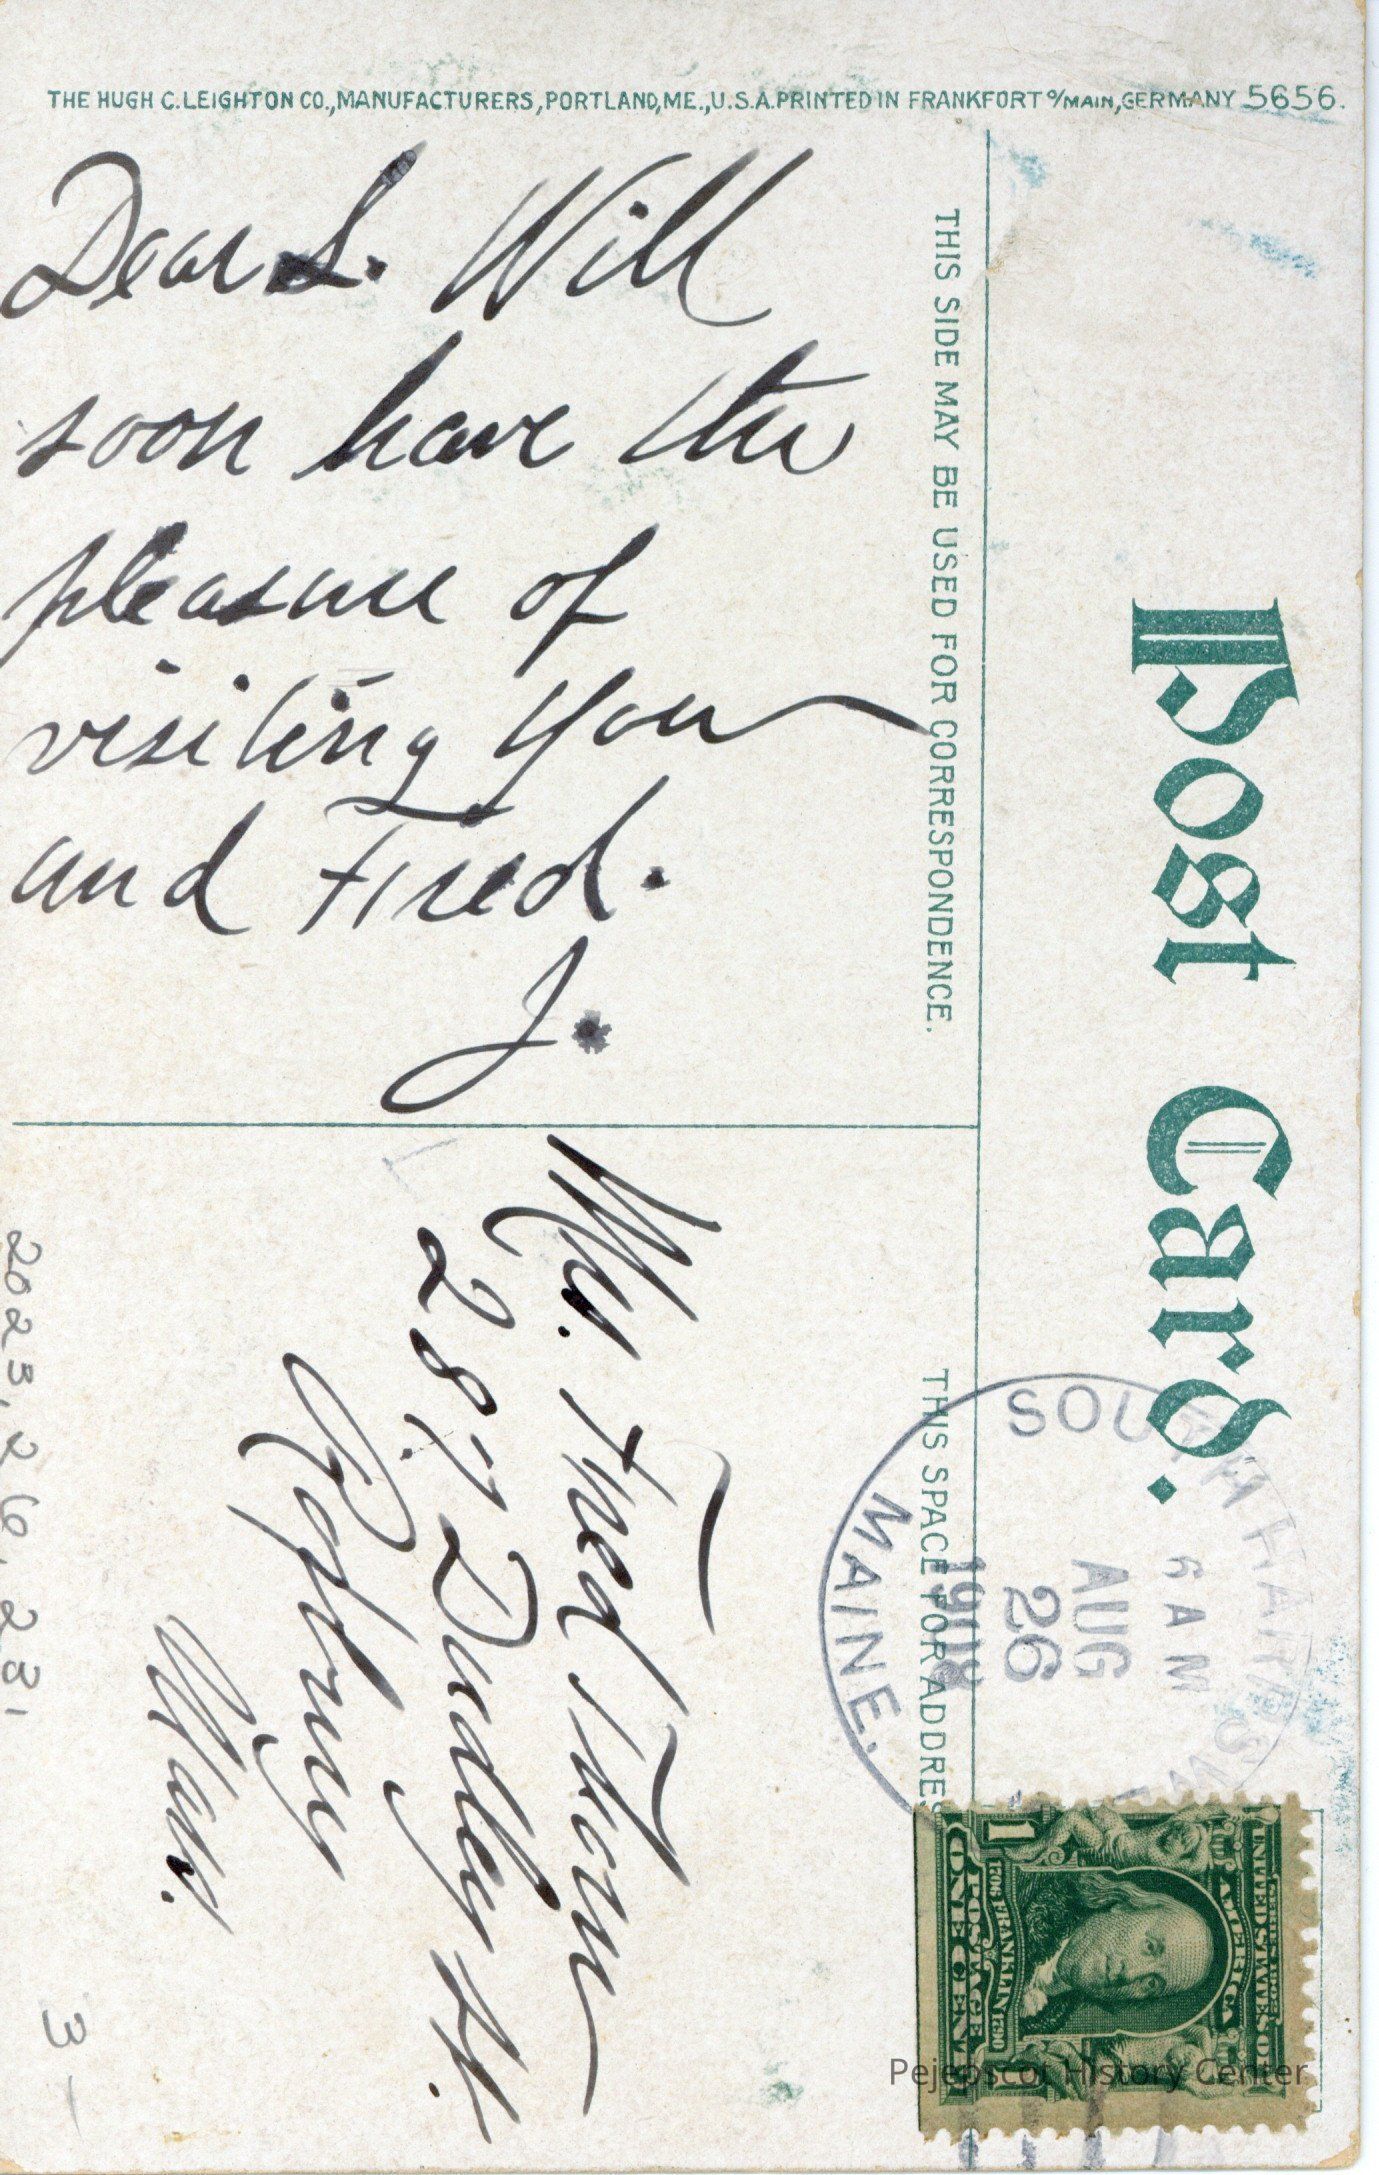 THE HUGH C. LEIGHTON CO., MANUFACTURERS, PORTLAND, ME., U.S.A. PRINTED IN FRANKFORT o/MAIN, GERMANY 5656.
Post Card.
THIS SIDE MAY BE USED FOR CORRESPONDENCE.
Dear S. Will
soon have the
pleasure of
visiting you
and Fred.
J.
THIS SPACE FOR ADDRES
SOUTH HARPSWE
6 AM
AUG
26
1908
MAINE.
SERIES 1902
UNITED STATES OF
AMERICA
1706 FRANKLIN 1790
POSTAGE
1 ONE CENT 1
Mrs. Fred
287 Dudley St.
Roxbury
Mass.
2023.26.231
3
Pejepscot History Center